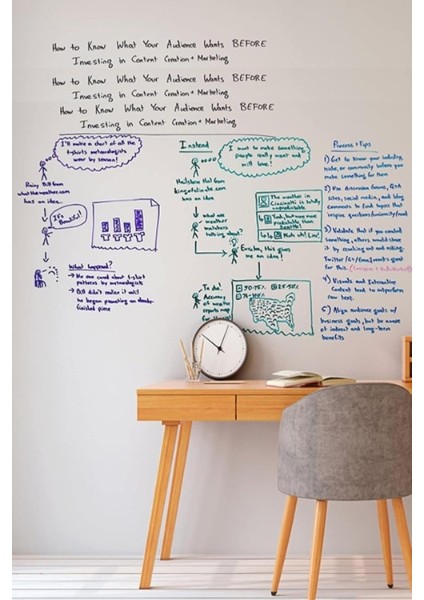 How to Know What Your Audience Wants BEFORE
Investing in Content Creation + Marketing
How to Know What Your Audience Wants BEFORE
Investing in Content Creation + Marketing
How to Know What Your Audience Wants BEFORE
Investing in Content Creation + Marketing
I'll make a chart of all the
t-shirts meteorologists
wear by season!
Rainy Bill from
whattheweather.com
has an idea...
It's
Beautiful!
What happened?
No one cared about t-shirt
patterns by meteorologists
Bill didn't realize it until
he began promoting an
finished piece
Instead
I want to make something
people really want and
will love!
Hailstorm Hal from
has an idea
what are
weather
watchers
talking about?
The weather in
Cincinnati is totally
unpredictable
Yeah, but may more
predictable than
Seattle!
Nuh uh! Um!
Eureka, this gives
me an idea!
To do!
Accuracy
of weather
reports
Process + Tips
1) Get to know your industry,
niche, or community before you
make something for them
2) Use discussion forums, Q&A
sites, social media, and blog
comments to find topics that
inspire questions/curiosity/need
3) Validate that if you created
something, others would share
it by reaching out and asking.
Twitter is great
for this.
4) Visuals and Interactive
Content tend to outperform
raw text.
5) Align audience goals w/
business goals, but be aware
of indirect and long-term
benefits